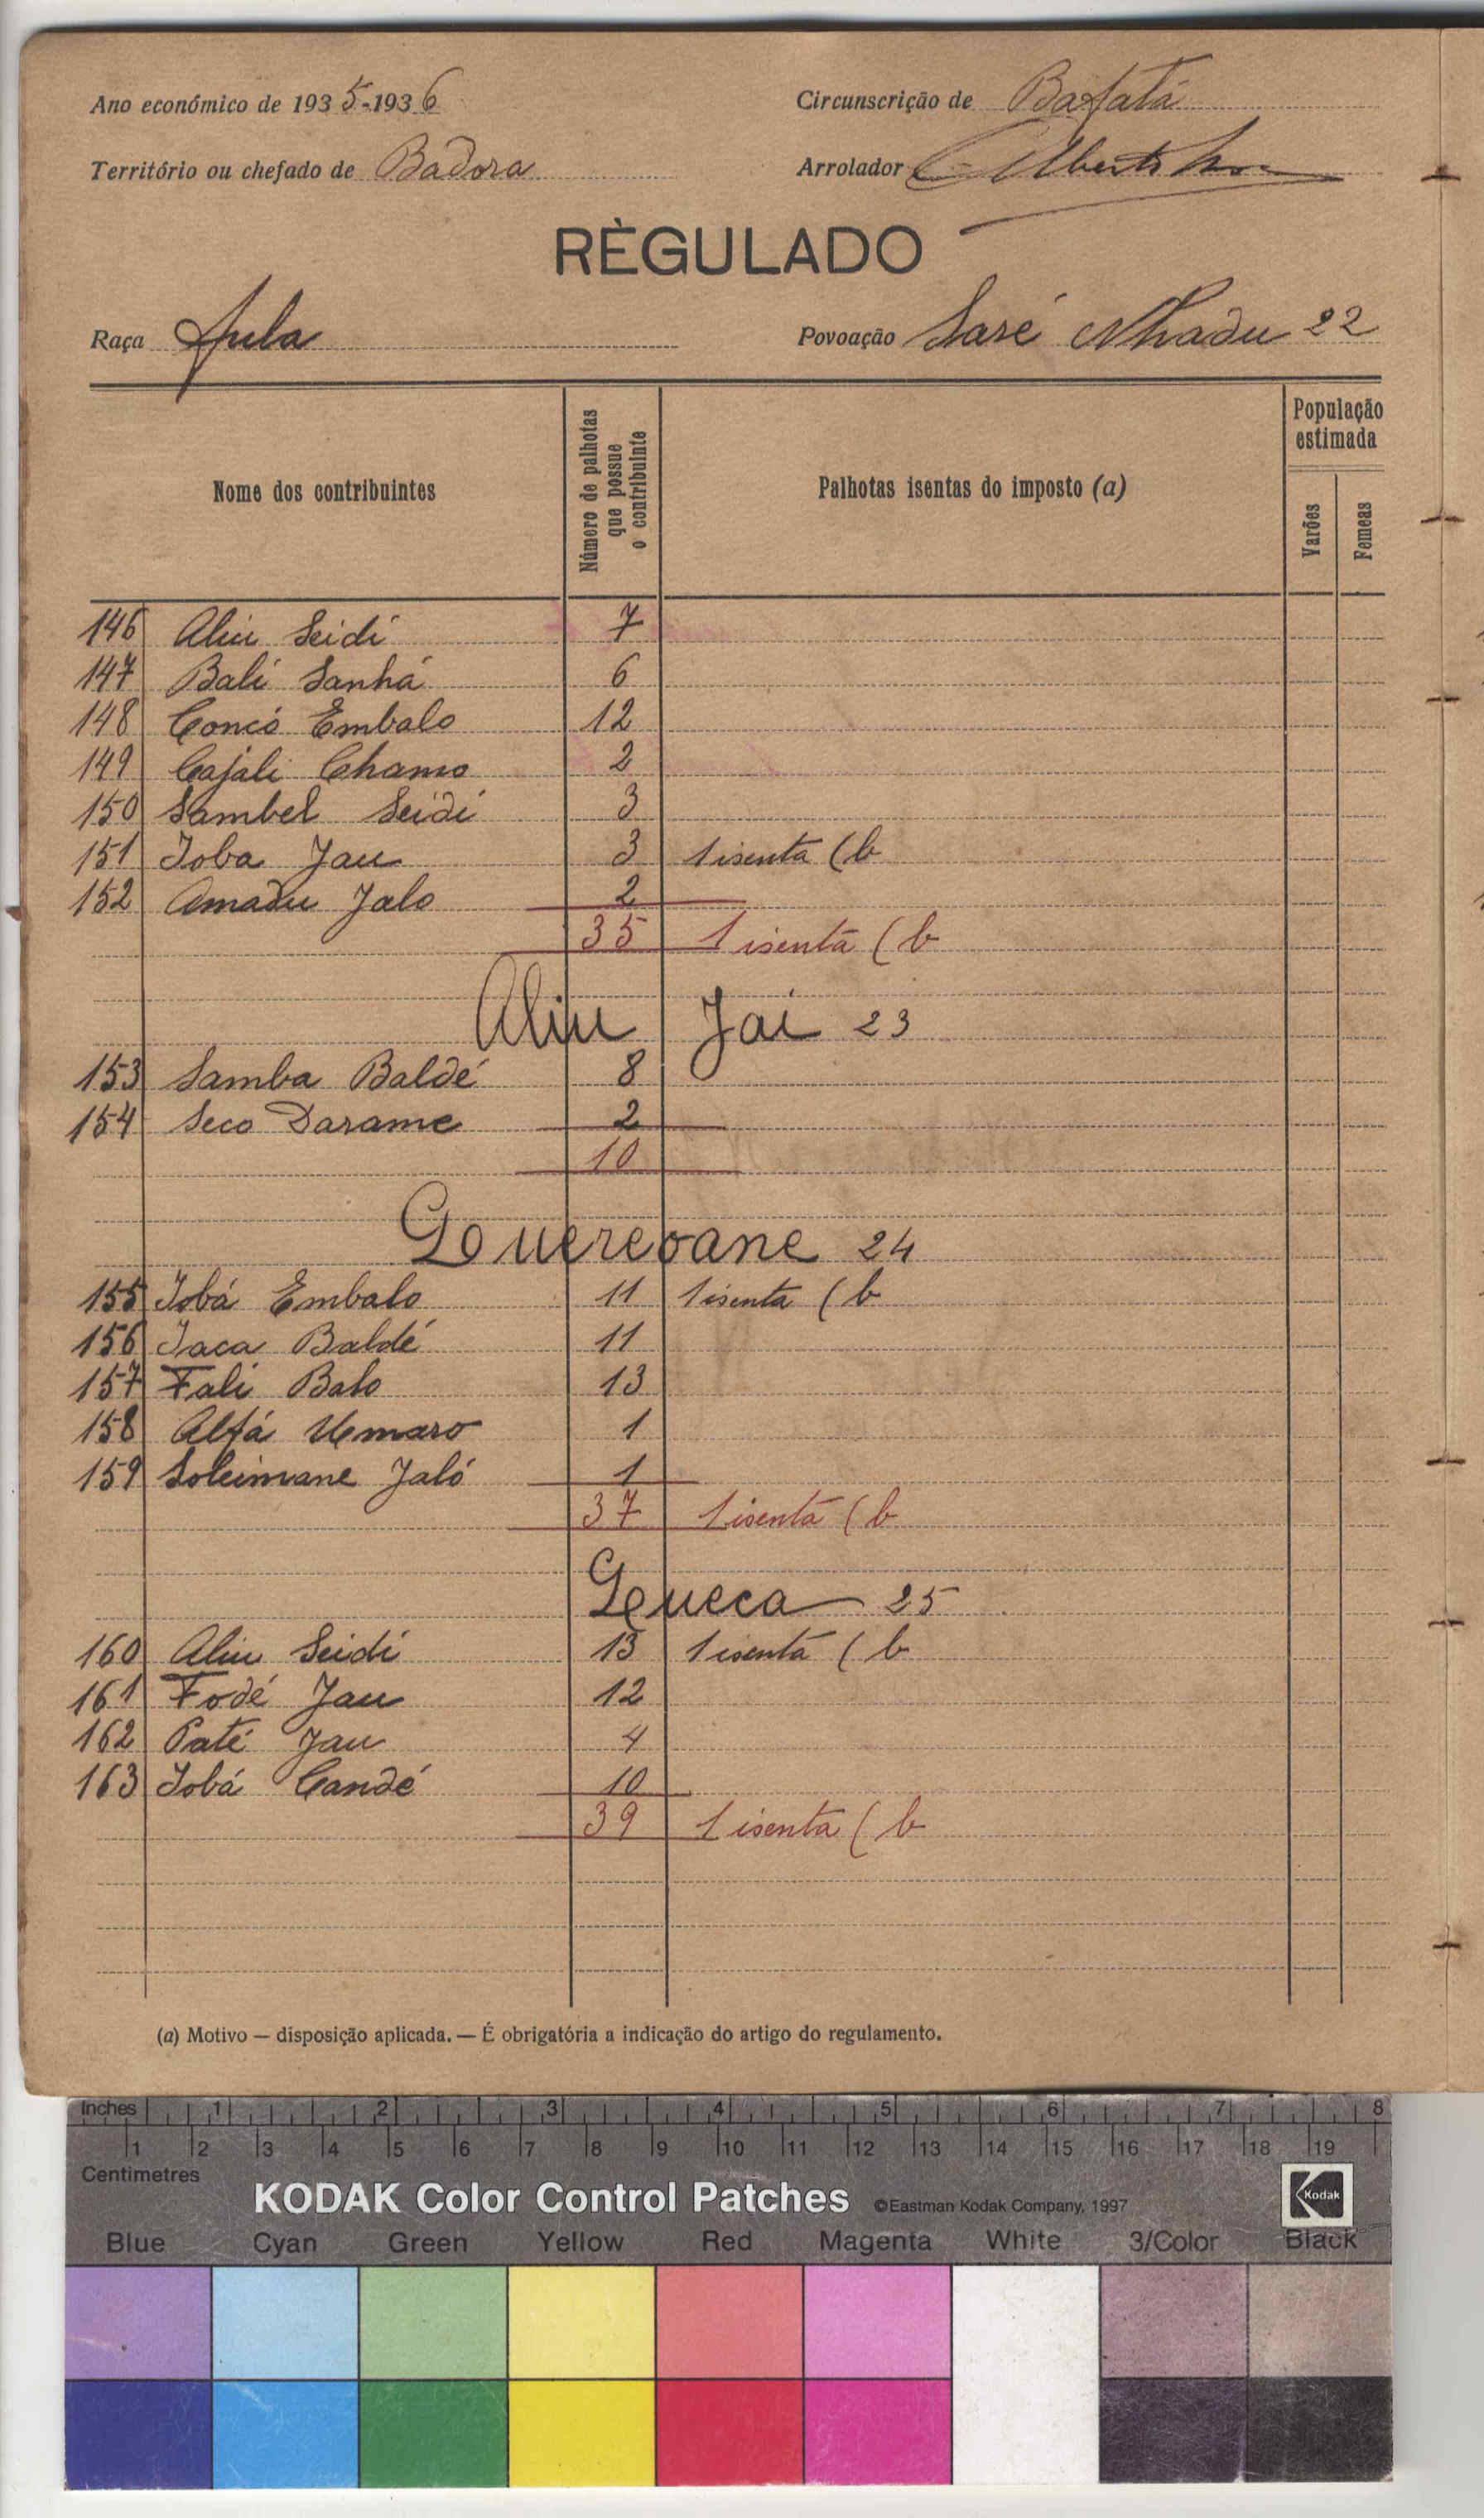 Ano económico de 1935-1936
Circunscrição de Bafatá
Território ou chefado de Badora
Arrolador Alberto
RÈGULADO
Raça Fula
Povoação Saré Nhadu 22
Nome dos contribuintes
Número de palhotas que possue o contribuinte
Palhotas isentas do imposto (a)
População estimada
Varões
Femeas
146 Aliu Seidi 7
147 Bali Sanhá 6
148 Concó Embalo 12
149 Cajali Chamo 2
150 Sambel Seidi 3
151 Ioba Jau 3 1 isenta (b
152 Amadu Jalo 2
35 1 isenta (b
Aliu Jai 23
153 Samba Baldé 8
154 Seco Darame 2
10
Quereoane 24
155 Iobá Embalo 11 1 isenta (b
156 Iaca Baldé 11
157 Fali Balo 13
158 Alfá Umaro 1
159 Soleimane Jaló 1
37 1 isenta (b
Queca 25
160 Aliu Seidi 13 1 isenta (b
161 Fodé Jau 12
162 Paté Jau 4
163 Iobá Candé 10
39 1 isenta (b
(a) Motivo — disposição aplicada. — É obrigatória a indicação do artigo do regulamento.
Inches 1 2 3 4 5 6 7 8
1 2 3 4 5 6 7 8 9 10 11 12 13 14 15 16 17 18 19
Centimetres
KODAK Color Control Patches ©Eastman Kodak Company, 1997 Kodak
Blue Cyan Green Yellow Red Magenta White 3/Color Black